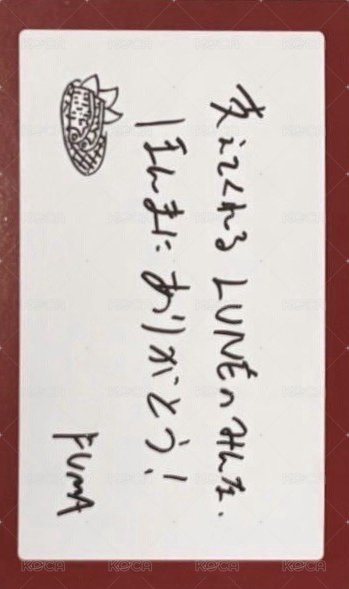 支えてくれる LUNÉのみんな、
ほんまに ありがとう!
FUMA
KDCA